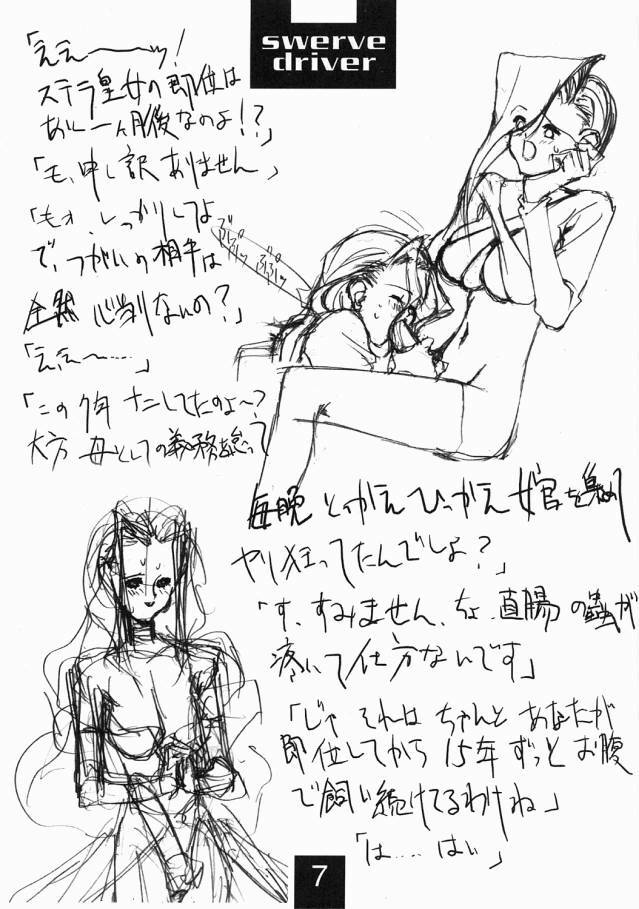 swerve
driver
「ええ———ッ!
ステラ皇女の即位は
あと一ヶ月後なのよ!?」
「も、申し訳ありません」
「もォ、しっかりしてよ
で、つがいの相手は
全然 心当りないの?」
「ええ〜……」
「この 年 ナニしてたのよ〜?
大方 母としての義務を怠って
毎晩 とっかえひっかえ 女官を集め
ヤリ狂ってたんでしょ?」
「す、すみません、ちょ、直腸の蟲が
疼いて仕方ないんです」
「じゃ それは ちゃんと あなたが
即位してから 15年 ずっと お腹
で飼い続けてるわけね」
「は……はい」
7